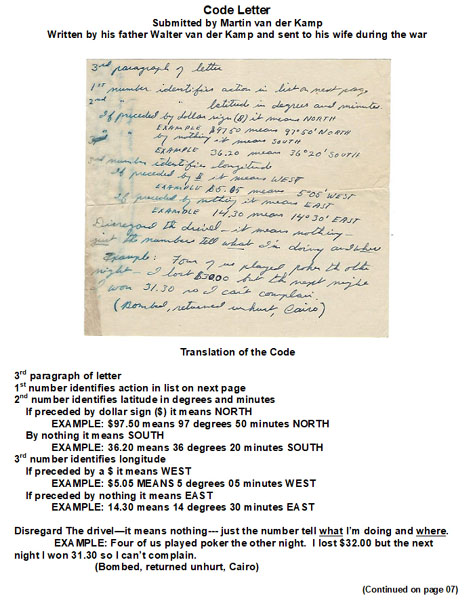 Code Letter
Submitted by Martin van der Kamp
Written by his father Walter van der Kamp and sent to his wife during the war
3rd paragraph of letter
1st number identifies action in list on next page
2nd " " latitude in degrees and minutes.
If preceded by dollar sign ($) it means NORTH
EXAMPLE $97.50 means 97°50' NORTH
by nothing it means SOUTH
EXAMPLE 36.20 means 36°20' SOUTH
number identifies longitude
If preceded by $ it means WEST
EXAMPLE $5.05 means 5°05' WEST
If preceded by nothing it means EAST
EXAMPLE 14.30 means 14°30' EAST
Disregard the drivel - it means nothing -
just the numbers tell what I'm doing and where
Example: Four of us played poker the other
night - I lost $30.00 but the next night
I won 31.30 so I can't complain.
(Bombed, returned unhurt, Cairo)
Translation of the Code
3rd paragraph of letter
1st number identifies action in list on next page
2nd number identifies latitude in degrees and minutes
If preceded by dollar sign ($) it means NORTH
EXAMPLE: $97.50 means 97 degrees 50 minutes NORTH
By nothing it means SOUTH
EXAMPLE: 36.20 means 36 degrees 20 minutes SOUTH
3rd number identifies longitude
If preceded by a $ it means WEST
EXAMPLE: $5.05 MEANS 5 degrees 05 minutes WEST
If preceded by nothing it means EAST
EXAMPLE: 14.30 means 14 degrees 30 minutes EAST
Disregard The drivel—it means nothing--- just the number tell what I'm doing and where.
EXAMPLE: Four of us played poker the other night. I lost $32.00 but the next
night I won 31.30 so I can't complain.
(Bombed, returned unhurt, Cairo)
(Continued on page 07)